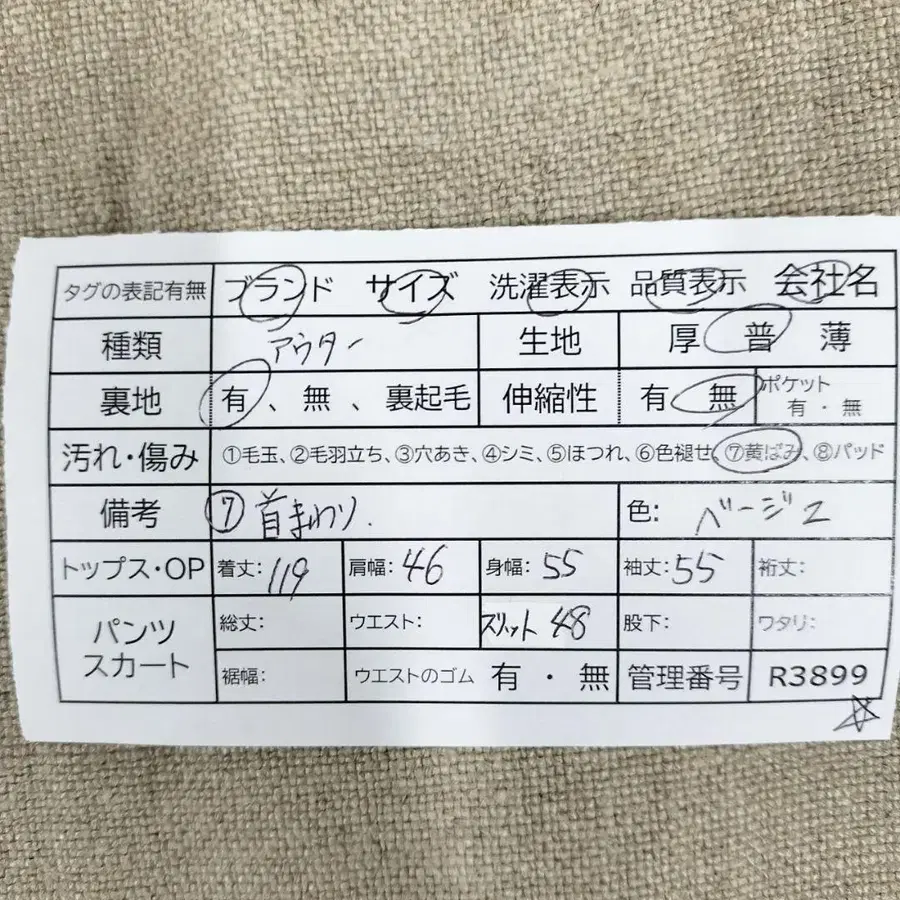 タグの表記有無 ブランド サイズ 洗濯表示 品質表示 会社名
種類 アウター 生地 厚 普 薄
裏地 有 、 無 、 裏起毛 伸縮性 有 無 ポケット 有 ・ 無
汚れ・傷み ①毛玉、②毛羽立ち、③穴あき、④シミ、⑤ほつれ、⑥色褪せ、⑦黄ばみ、⑧パッド
備考 ⑦ 首まわり. 色: ベージュ
トップス・OP 着丈: 119 肩幅: 46 身幅: 55 袖丈: 55 裄丈:
パンツ スカート 総丈: ウエスト: スリット 48 股下: ワタリ:
裾幅: ウエストのゴム 有 ・ 無 管理番号 R3899